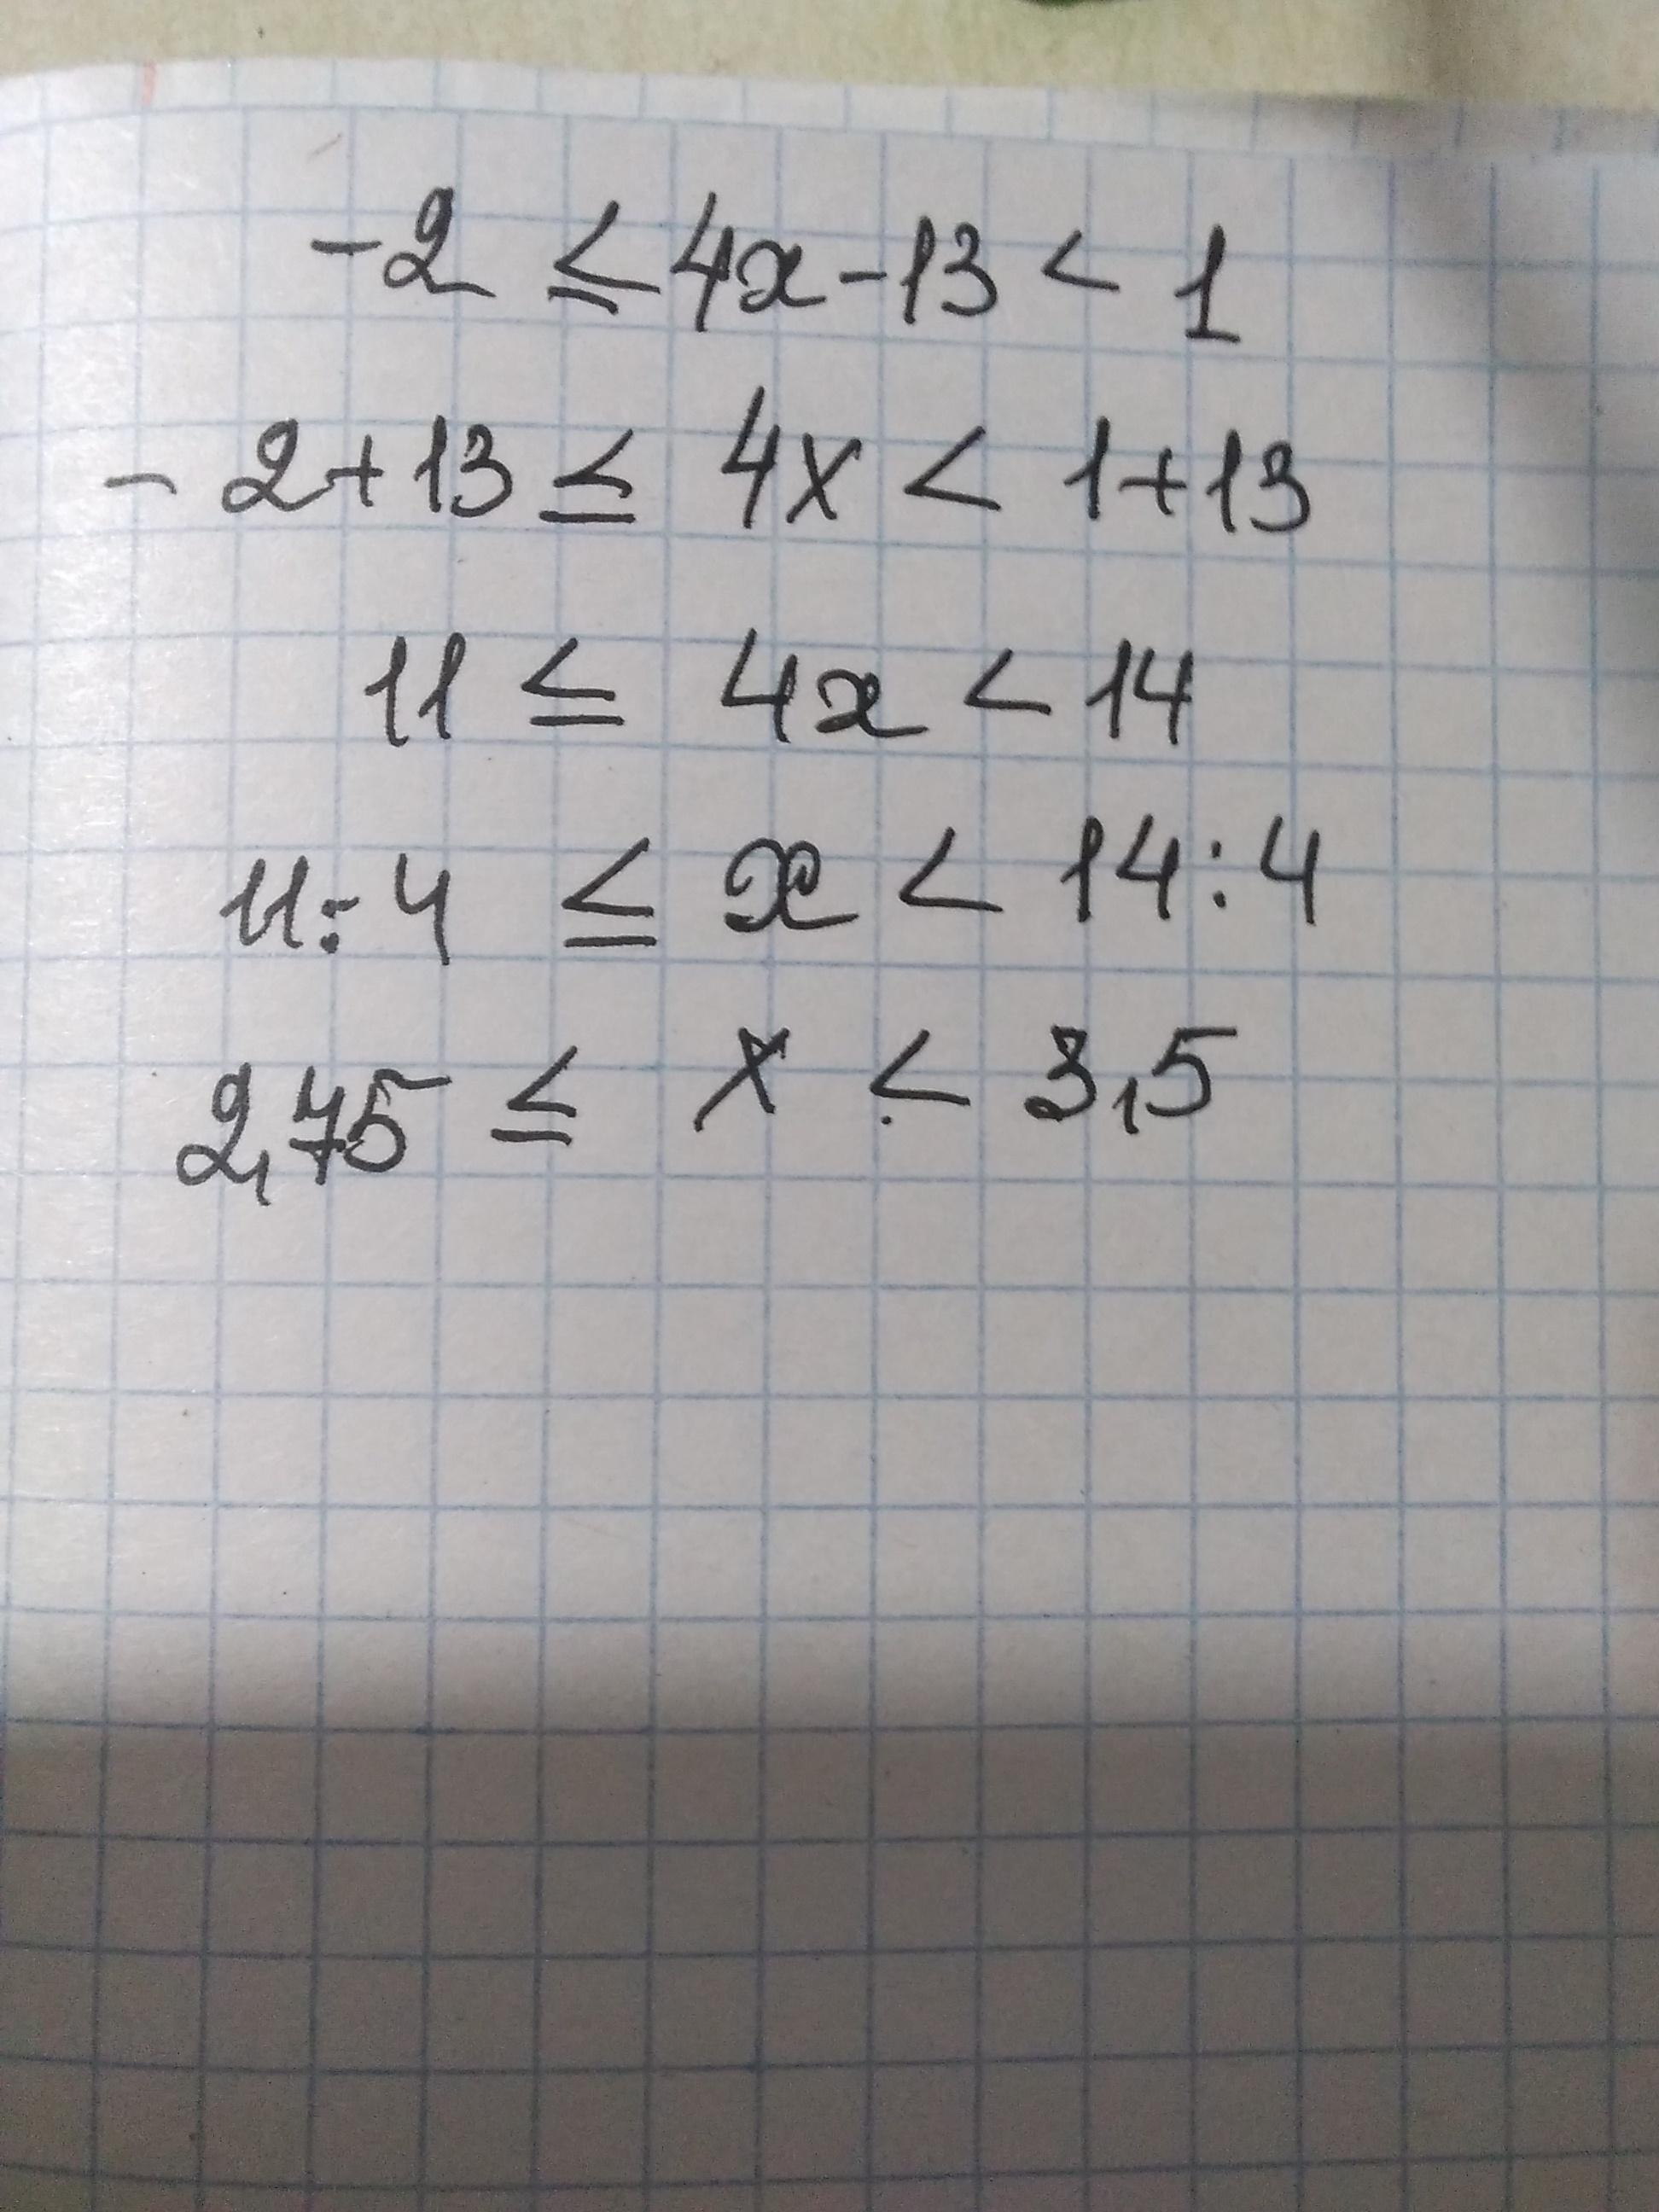 -2 ≤ 4x-13 < 1
-2+13 ≤ 4x < 1+13
11 ≤ 4x < 14
11:4 ≤ x < 14:4
2,75 ≤ x < 3,5